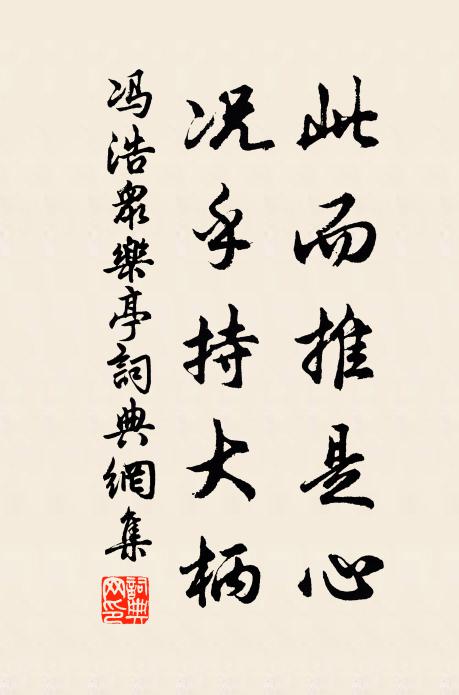 此而推是心
况乎持大柄
冯浩眾樂亭詞典網集
詞典网印